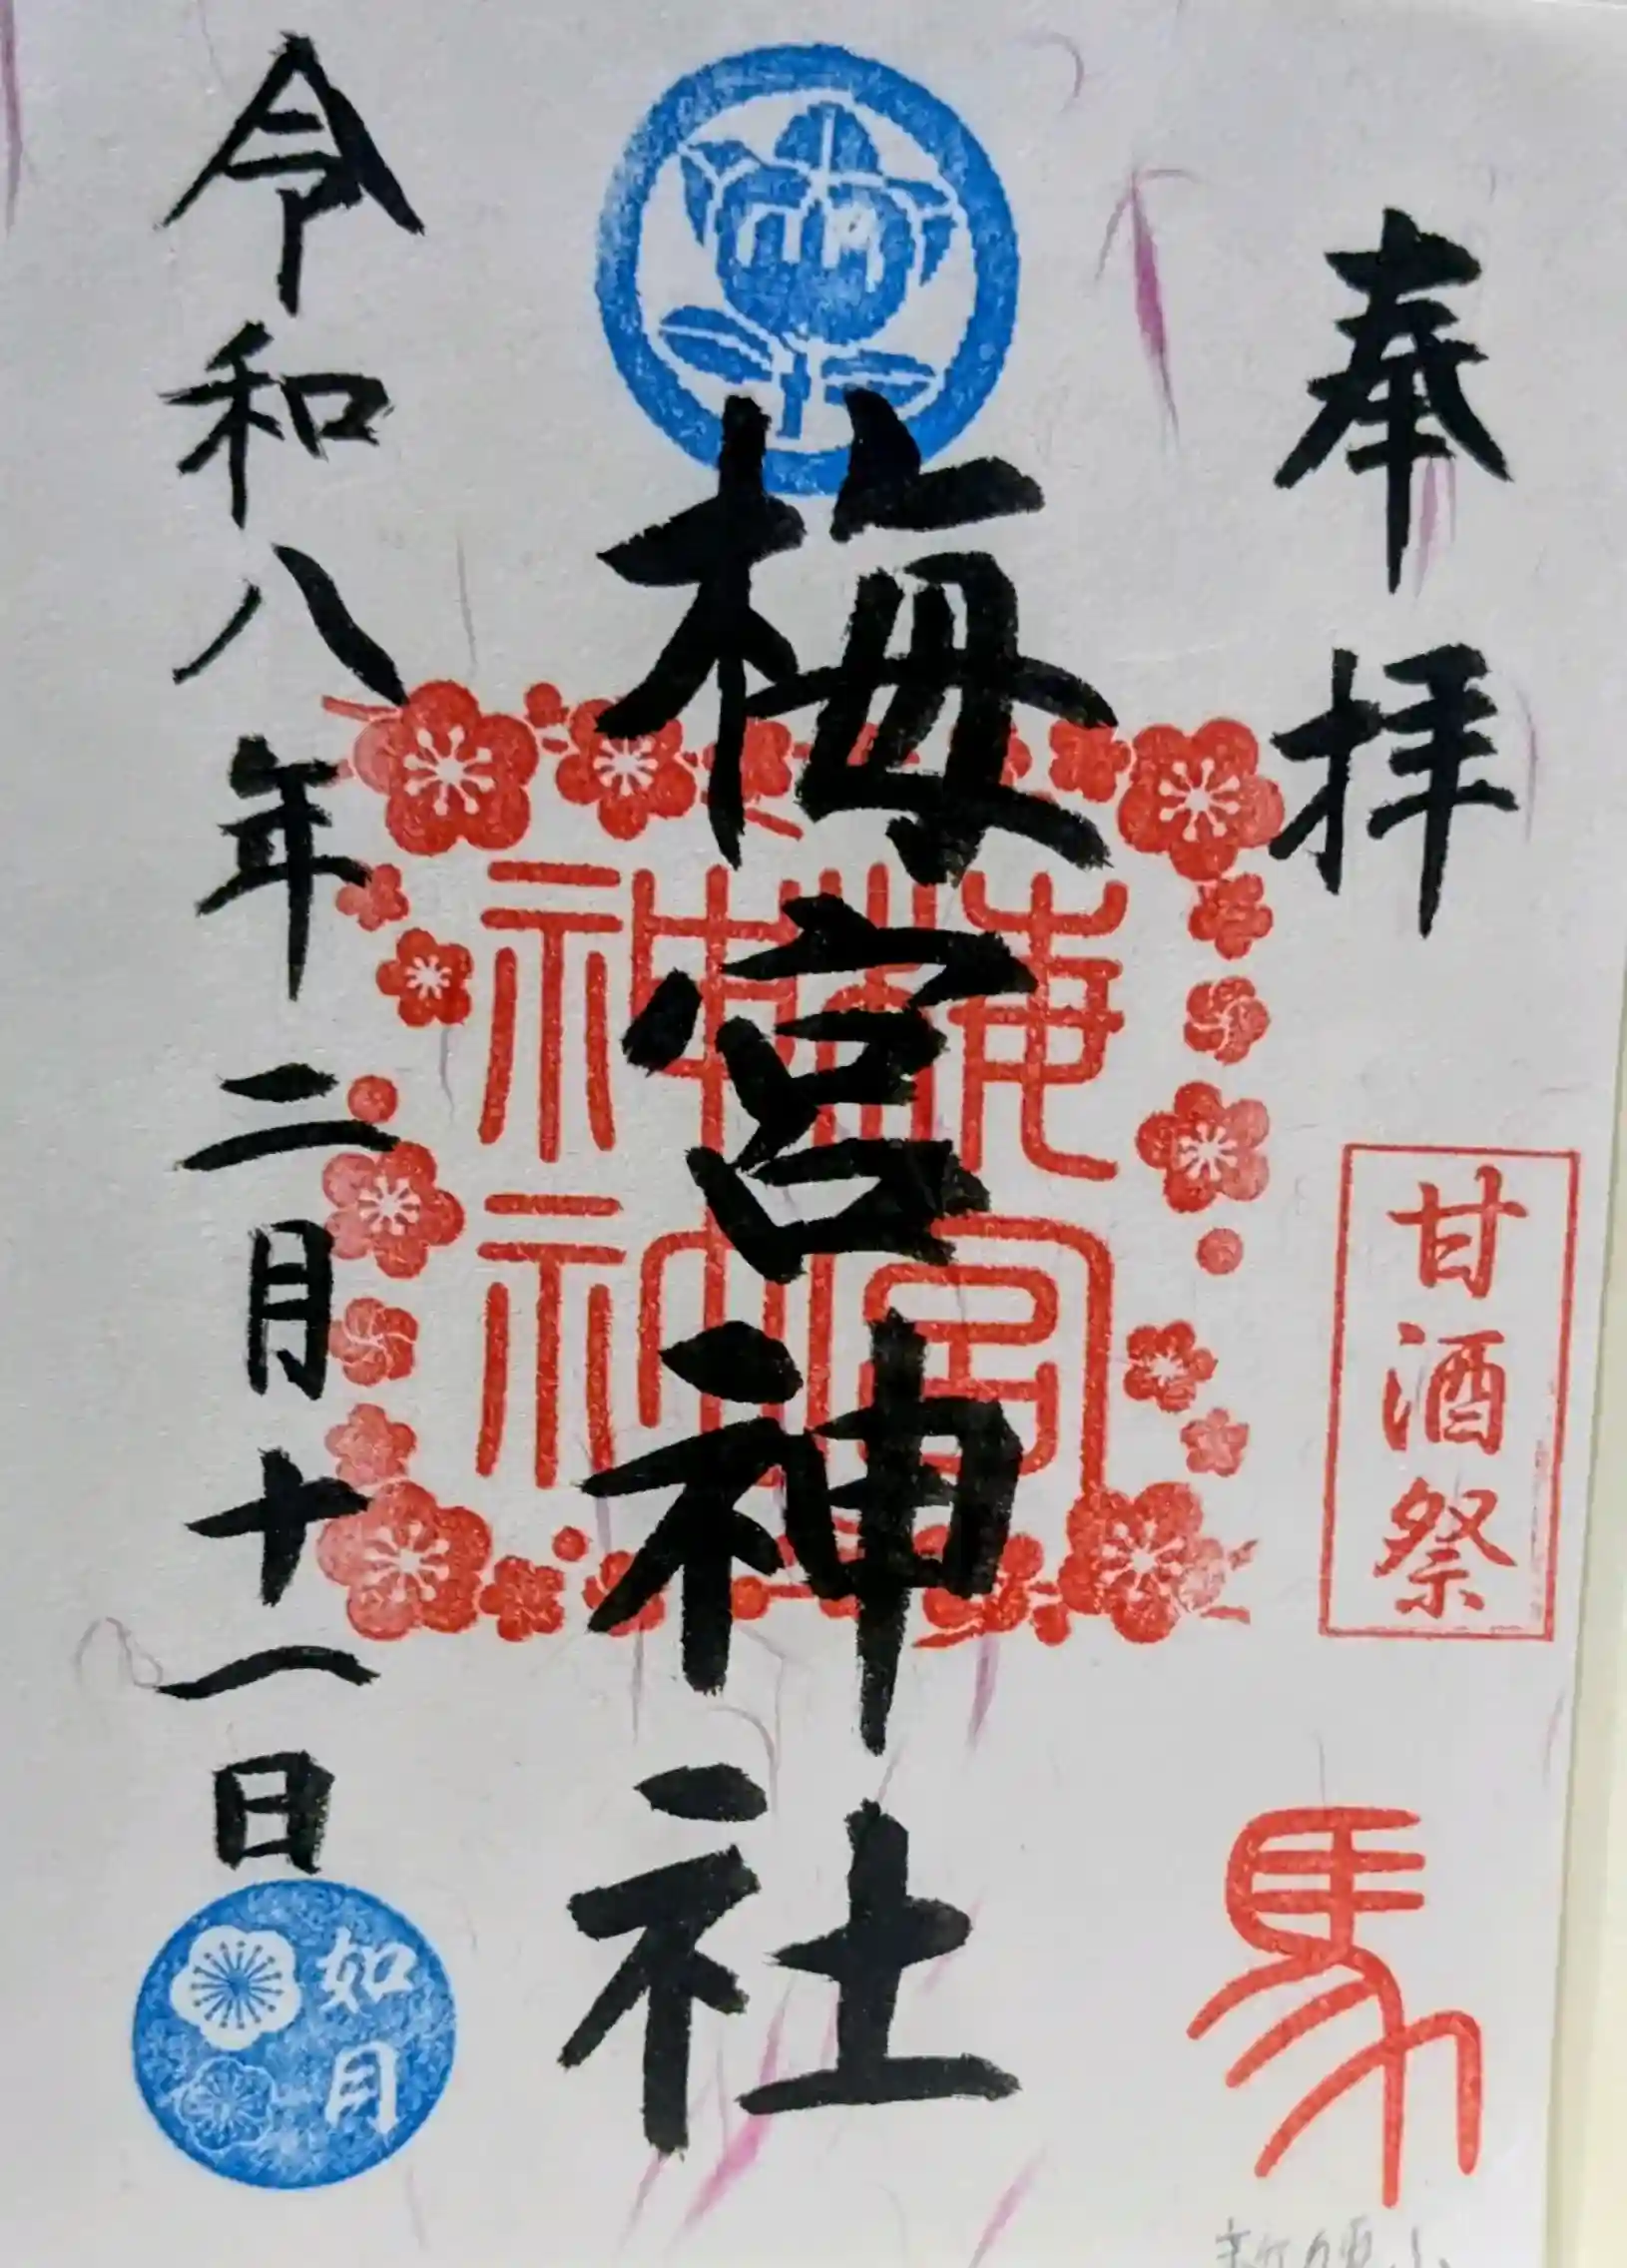 奉拝
甘酒祭
馬
梅宮神社
梅宮神社
令和八年二月十一日
如月